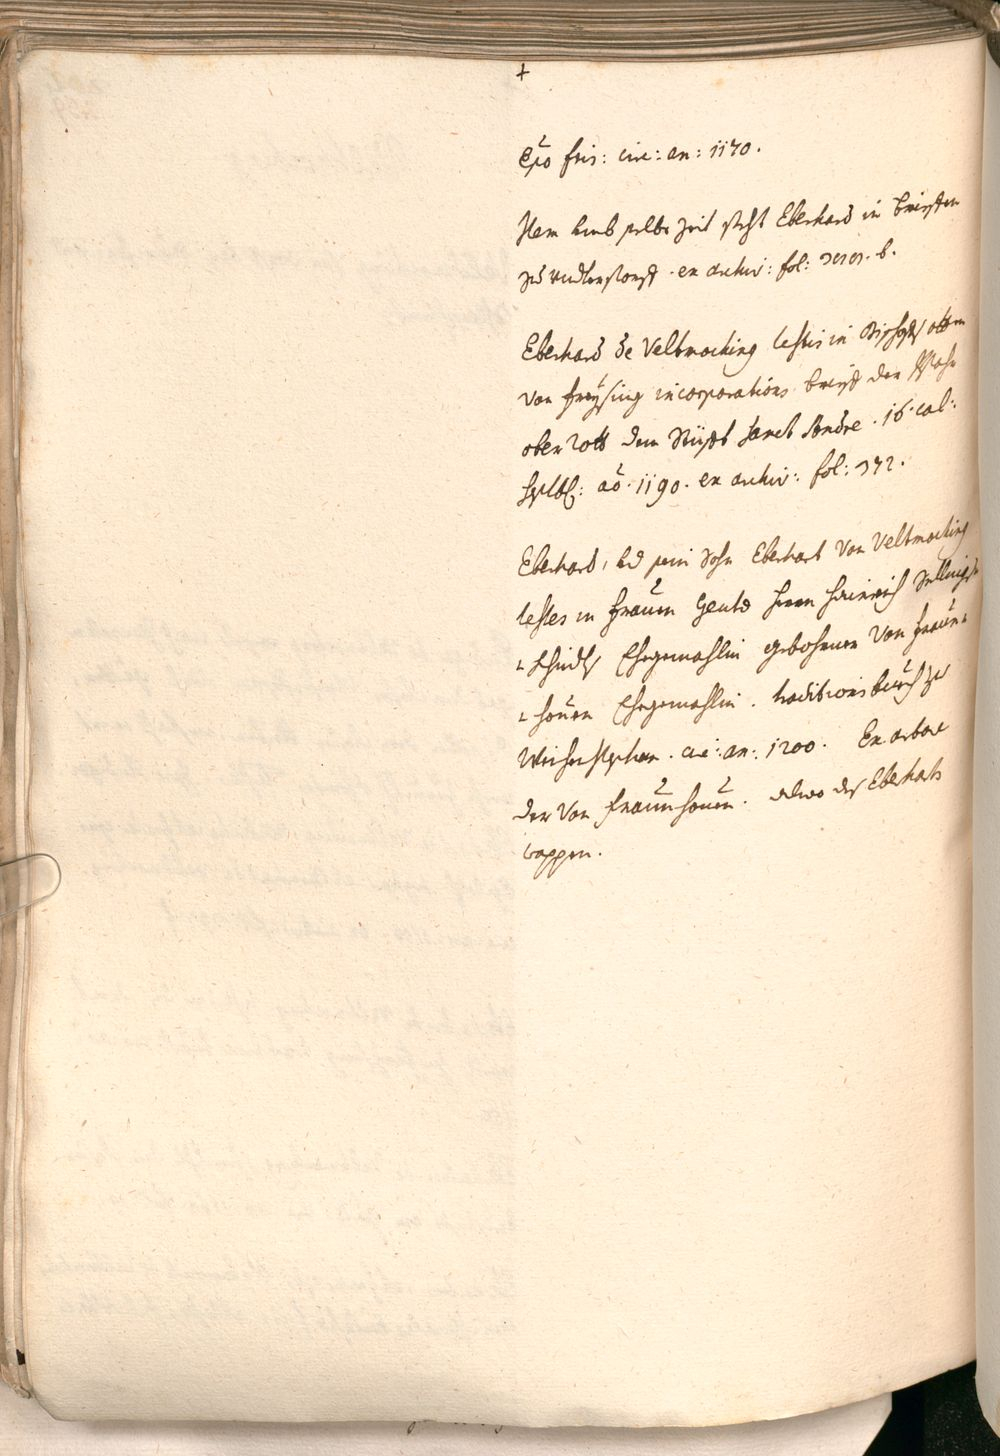 +
Epo fris: circ: an: 1170.
Item umb selbe Zeit steht Eberhard in brieffen
zu ex archiv: fol: b.
Eberhard de Veltmoching testis in Bischofs otten
von Freysing incorporations brieff der Pfahr
ober Rott dem Stüfft Sanct Andre . 16. cal:
Septbr: ao. 1190. ex archiv: fol: 372.
Eberhard, und sein Sohn Eberhart von Veltmoching
testes in Frauen Geuta Herrn Hainrich
Ehegemahlin gebohrnen von Fraun-
-houen Ehegemahlin. traditionsbuech zu
Weihenstephan. circ: an: 1200. Ex arbore
der von fraunhouen. alwo des Eberharts
wappen.